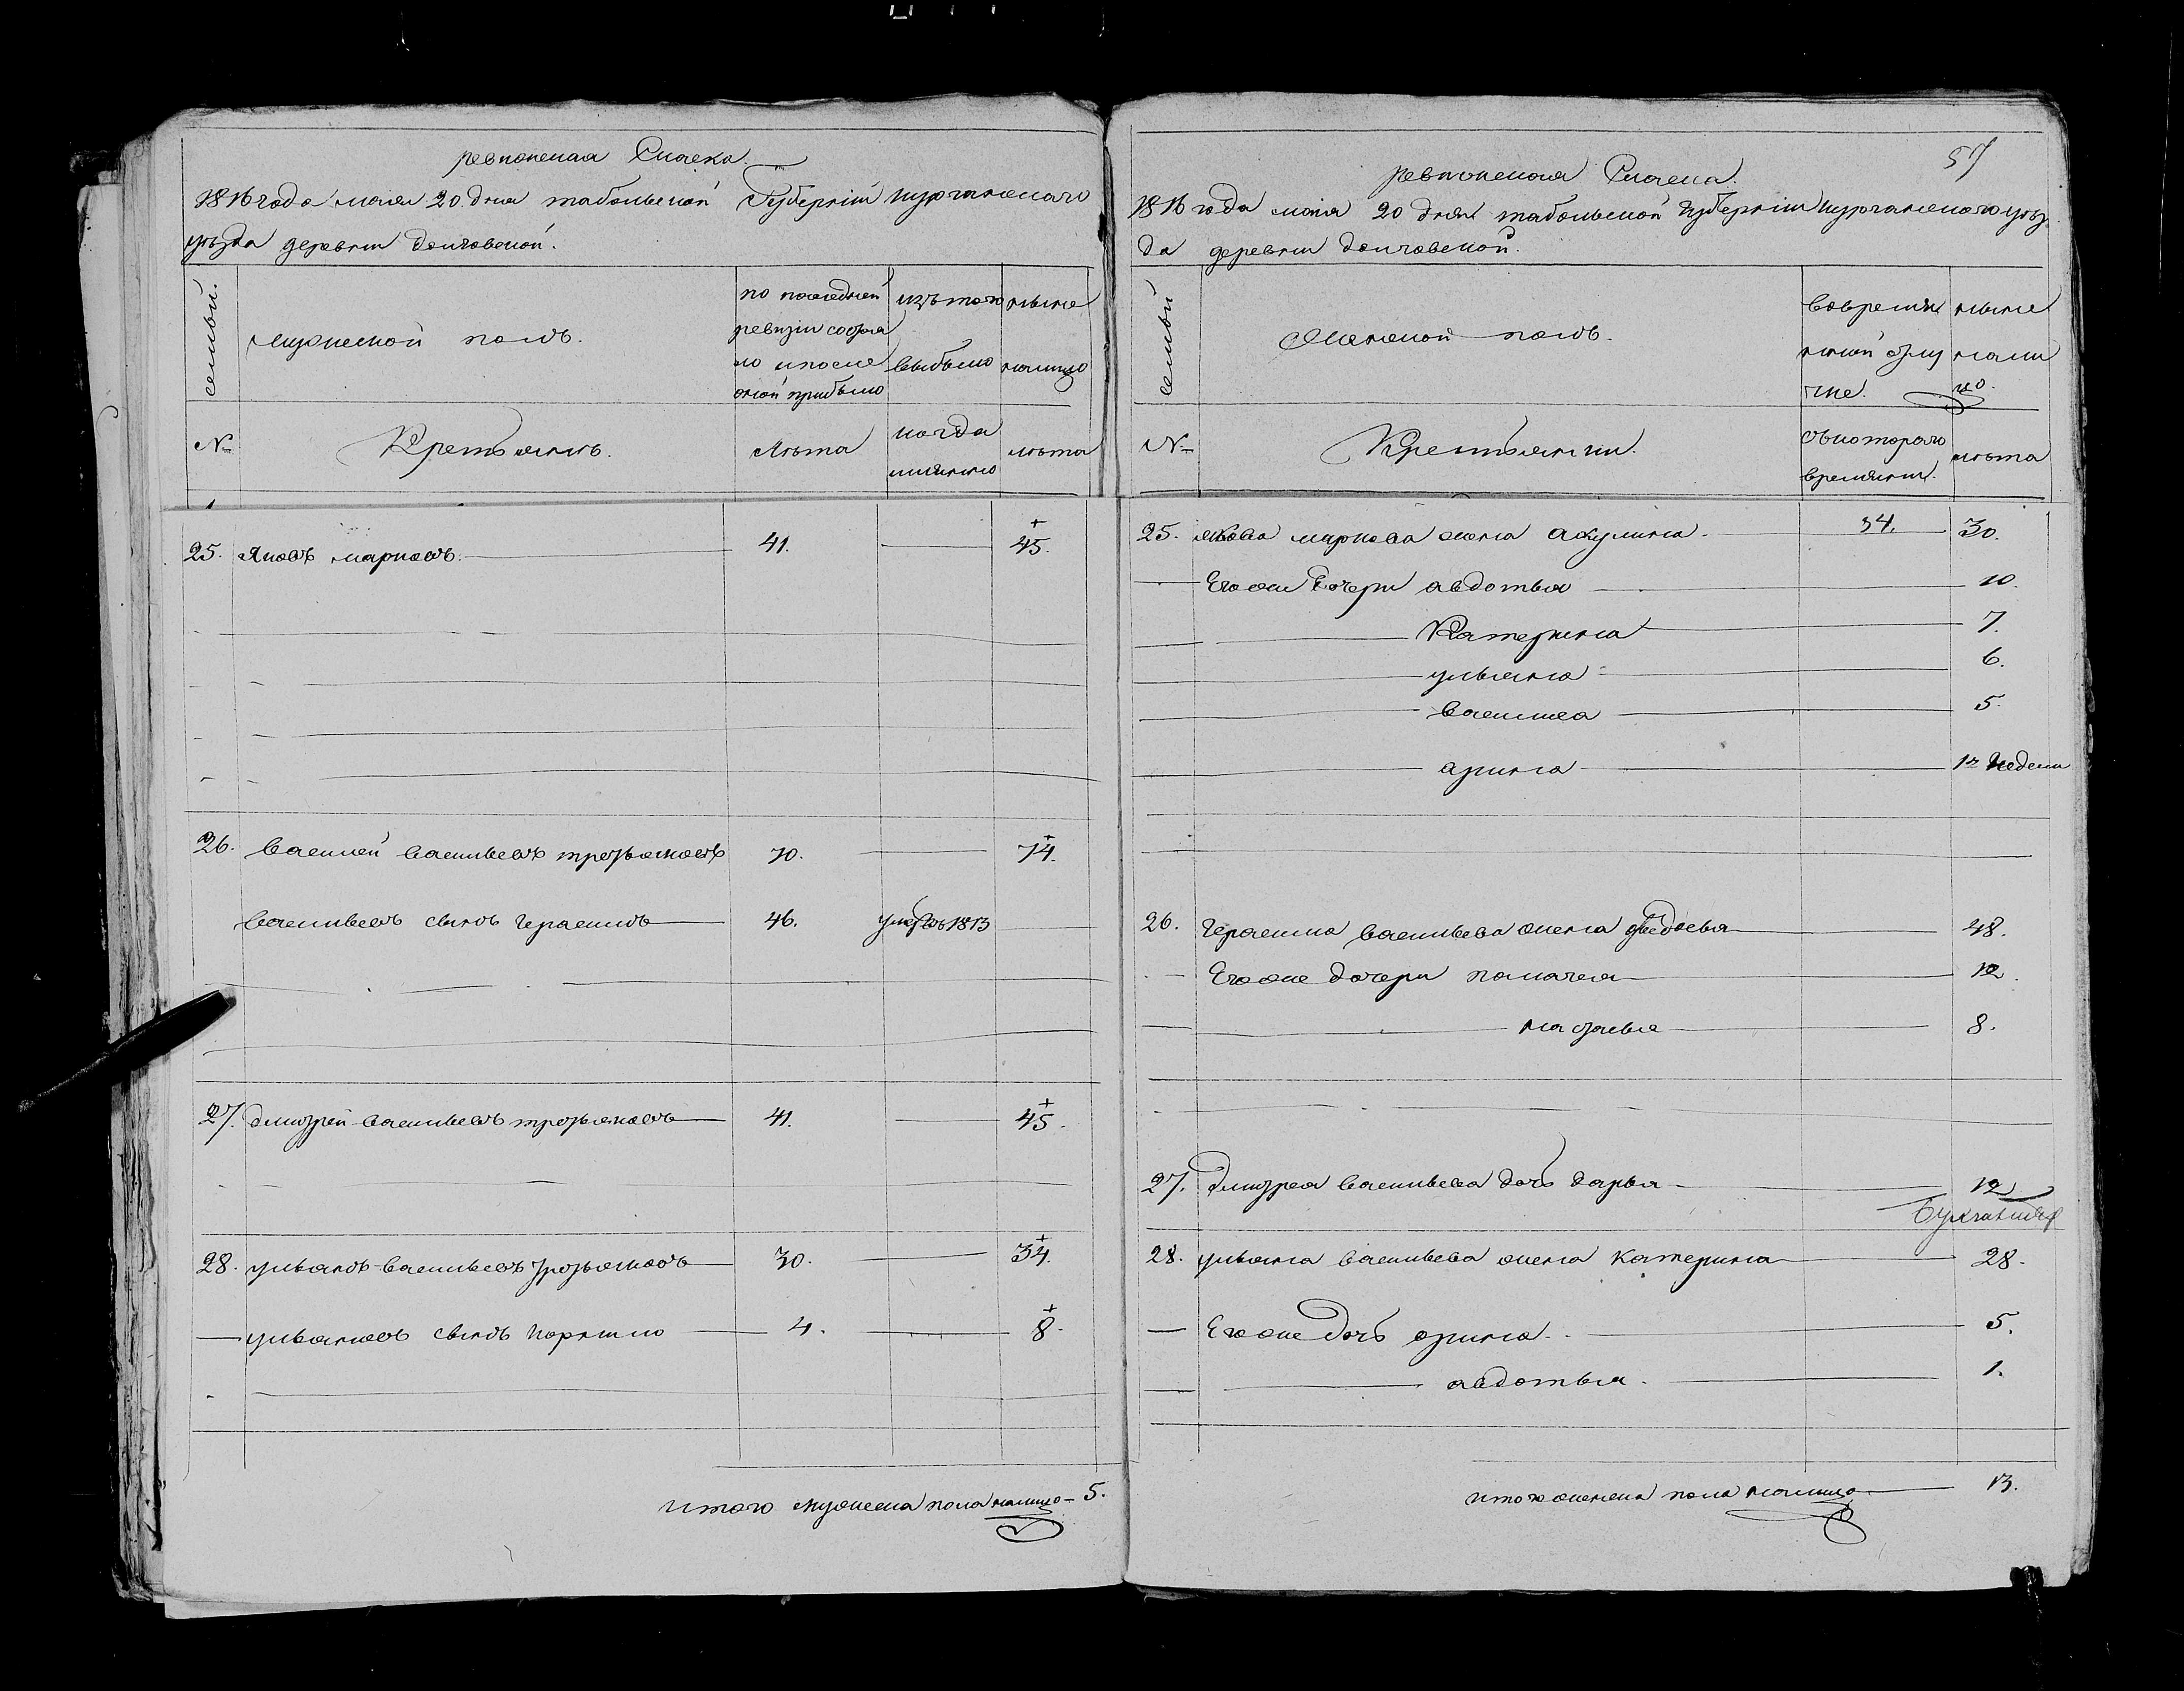 ревизская Сказка.
1816 года маия 20 дня табольской Губернiи курганскаго
уѣзда деревни Долговской.
семьи.
мужеской полъ.
по последней
ревизiи состоя
ло и после
оной прибыло
изъ того
выбыло
ныне
налицо
№
Крестьянъ.
лѣта
когда
имянно
лѣта
25. Яковъ марковъ. 41. 45.
26. Василей васильевъ третьяковъ 70. 74.
васильевъ сынъ Герасимъ 46. умре въ 1813
27. дмитрей васильевъ третьяковъ 41. 45.
28. ульянъ васильевъ третьяковъ 30. 34.
ульяновъ сынъ корнило 4. 8.
итого мужеска пола налицо 5.
57
ревизская Сказка.
1816 года маiя 20 дня табольской губернiи курганскаго уѣз
да деревни долговской.
семьи
Женской полъ.
вовремян
ной отлу
чке.
ныне
нали
цо.
№
Крестьянки.
съ котораго
времяни.
лѣта
25. якова маркова жена акулина 34. 30.
Его же дочери авдотья 10.
Катерина 7.
ульяна 6.
василиса 5.
арина 12 недели
26. Герасима васильева жена федосья 48.
Его же дочери палагея 12.
настасья 8.
27. дмитрея васильева дочь дарья 12
28. ульяна васильева жена катерина 28.
Его же дочь арина 5.
авдотья. 1.
итого женска пола налицо 13.